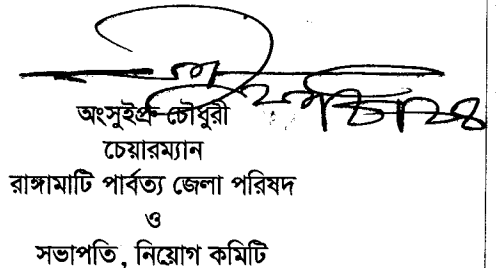 অংসুইপ্রু চৌধুরী
চেয়ারম্যান
রাঙ্গামাটি পার্বত্য জেলা পরিষদ
ও
সভাপতি, নিয়োগ কমিটি